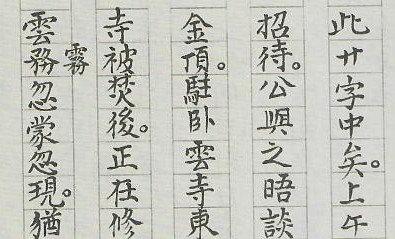 此廿字中矣。上午
招待。公與之晤談
金頂。駐卧雲寺東
寺被焚後。正在修
霧
雲務忽蒙忽現。猶